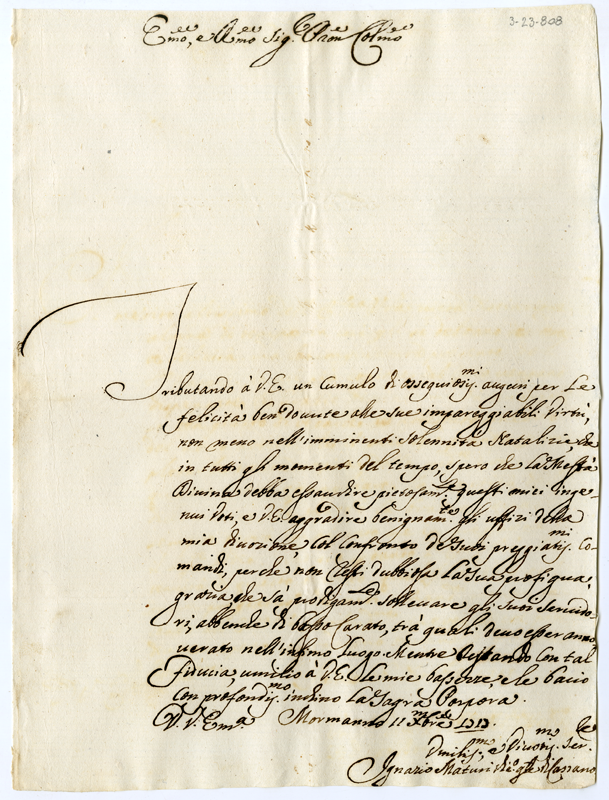 3-23-808
Em.o, e R.mo Sig.r Pron Col.mo
Tributando à V.E. un Cumulo di ossequiosiss.mi augurj per Le
felicità ben dovute alle sue impareggiabili Virtù,
non meno nell'imminenti Solennità Natalizie, che
in tutti gli momenti del tempo, spero che La Mestà
Divina debba essaudire pietosam.te questi miei inge-
nui Voti, e V.E. aggradire benignam.te gli uffizi della
mia divozione, Col Confronto de Suoi preggiatiss.mi Co-
mandi, perche non resti dubbiosa La Sua profiqua
grazia che sà prodigam.te sollevare gli Suoi Servido-
ri, abbenche di basso Carato, trà quali devo esser anno-
verato nell'infimo luogo. Mentre restando Con tal
fiducia, umilio à V.E. Le mie bassezze, e le bacio
Con profondiss.mo inchino La Sagra Porpora.
D. V. Em.a Mormanno 11 Xbre
Umiliss.mo, e Divotiss.mo Ser.re
Ignazio Maturi di Cassano